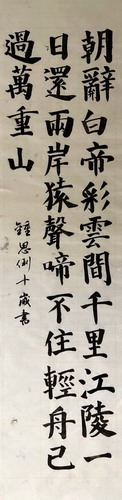 朝辭白帝彩雲間千里江陵一
日還兩岸猿聲啼不住輕舟已
過萬重山
鍾思俐十歲書